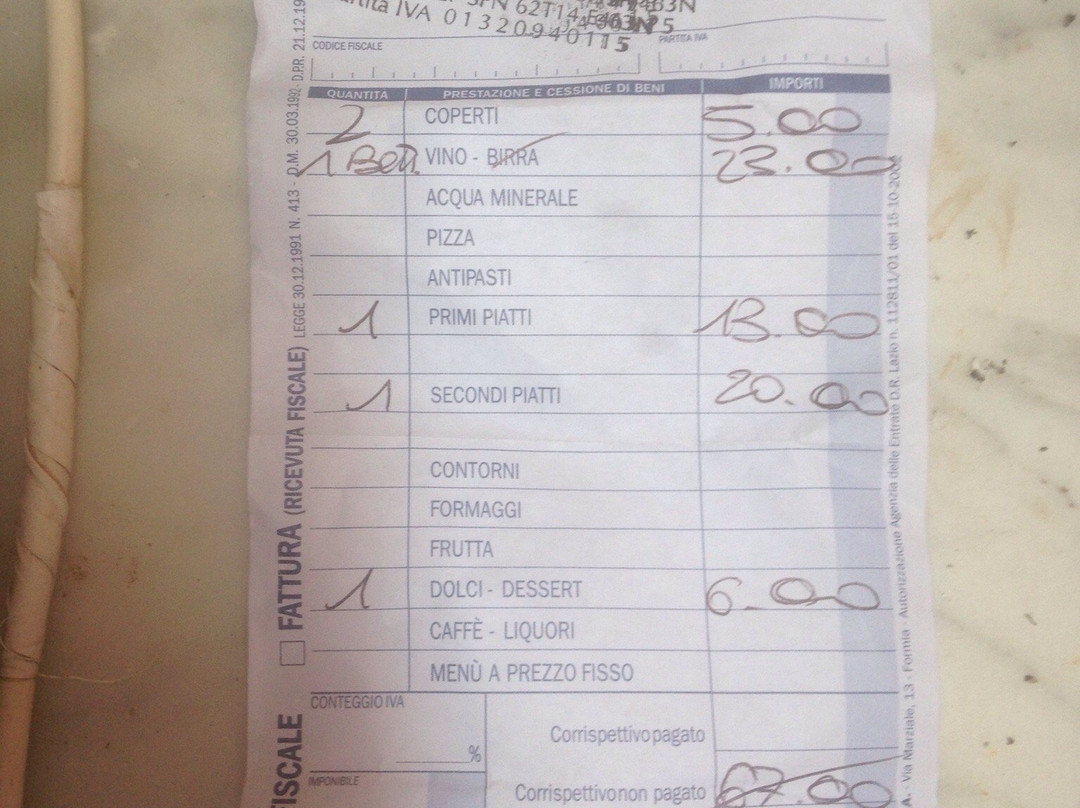 Partita IVA 01320940115
CODICE FISCALE
PARTITA IVA
QUANTITÀ PRESTAZIONE E CESSIONE DI BENI IMPORTI
2 COPERTI 5.00
1 Bott. VINO - BIRRA 23.00
ACQUA MINERALE
PIZZA
ANTIPASTI
1 PRIMI PIATTI 13.00
1 SECONDI PIATTI 20.00
CONTORNI
FORMAGGI
FRUTTA
1 DOLCI - DESSERT 6.00
CAFFÈ - LIQUORI
MENÙ A PREZZO FISSO
CONTEGGIO IVA
Corrispettivo pagato
%
IMPONIBILE
Corrispettivo non pagato 67.00
FATTURA (RICEVUTA FISCALE) LEGGE 30.12.1991 N. 413 - D.M. 30.03.1992 - D.P.R. 21.12.19
FISCALE
- Via Marziale, 13 - Formia - Autorizzazione Agenzia delle Entrate D.R. Lazio n. 112811/01 del 15-10-2002